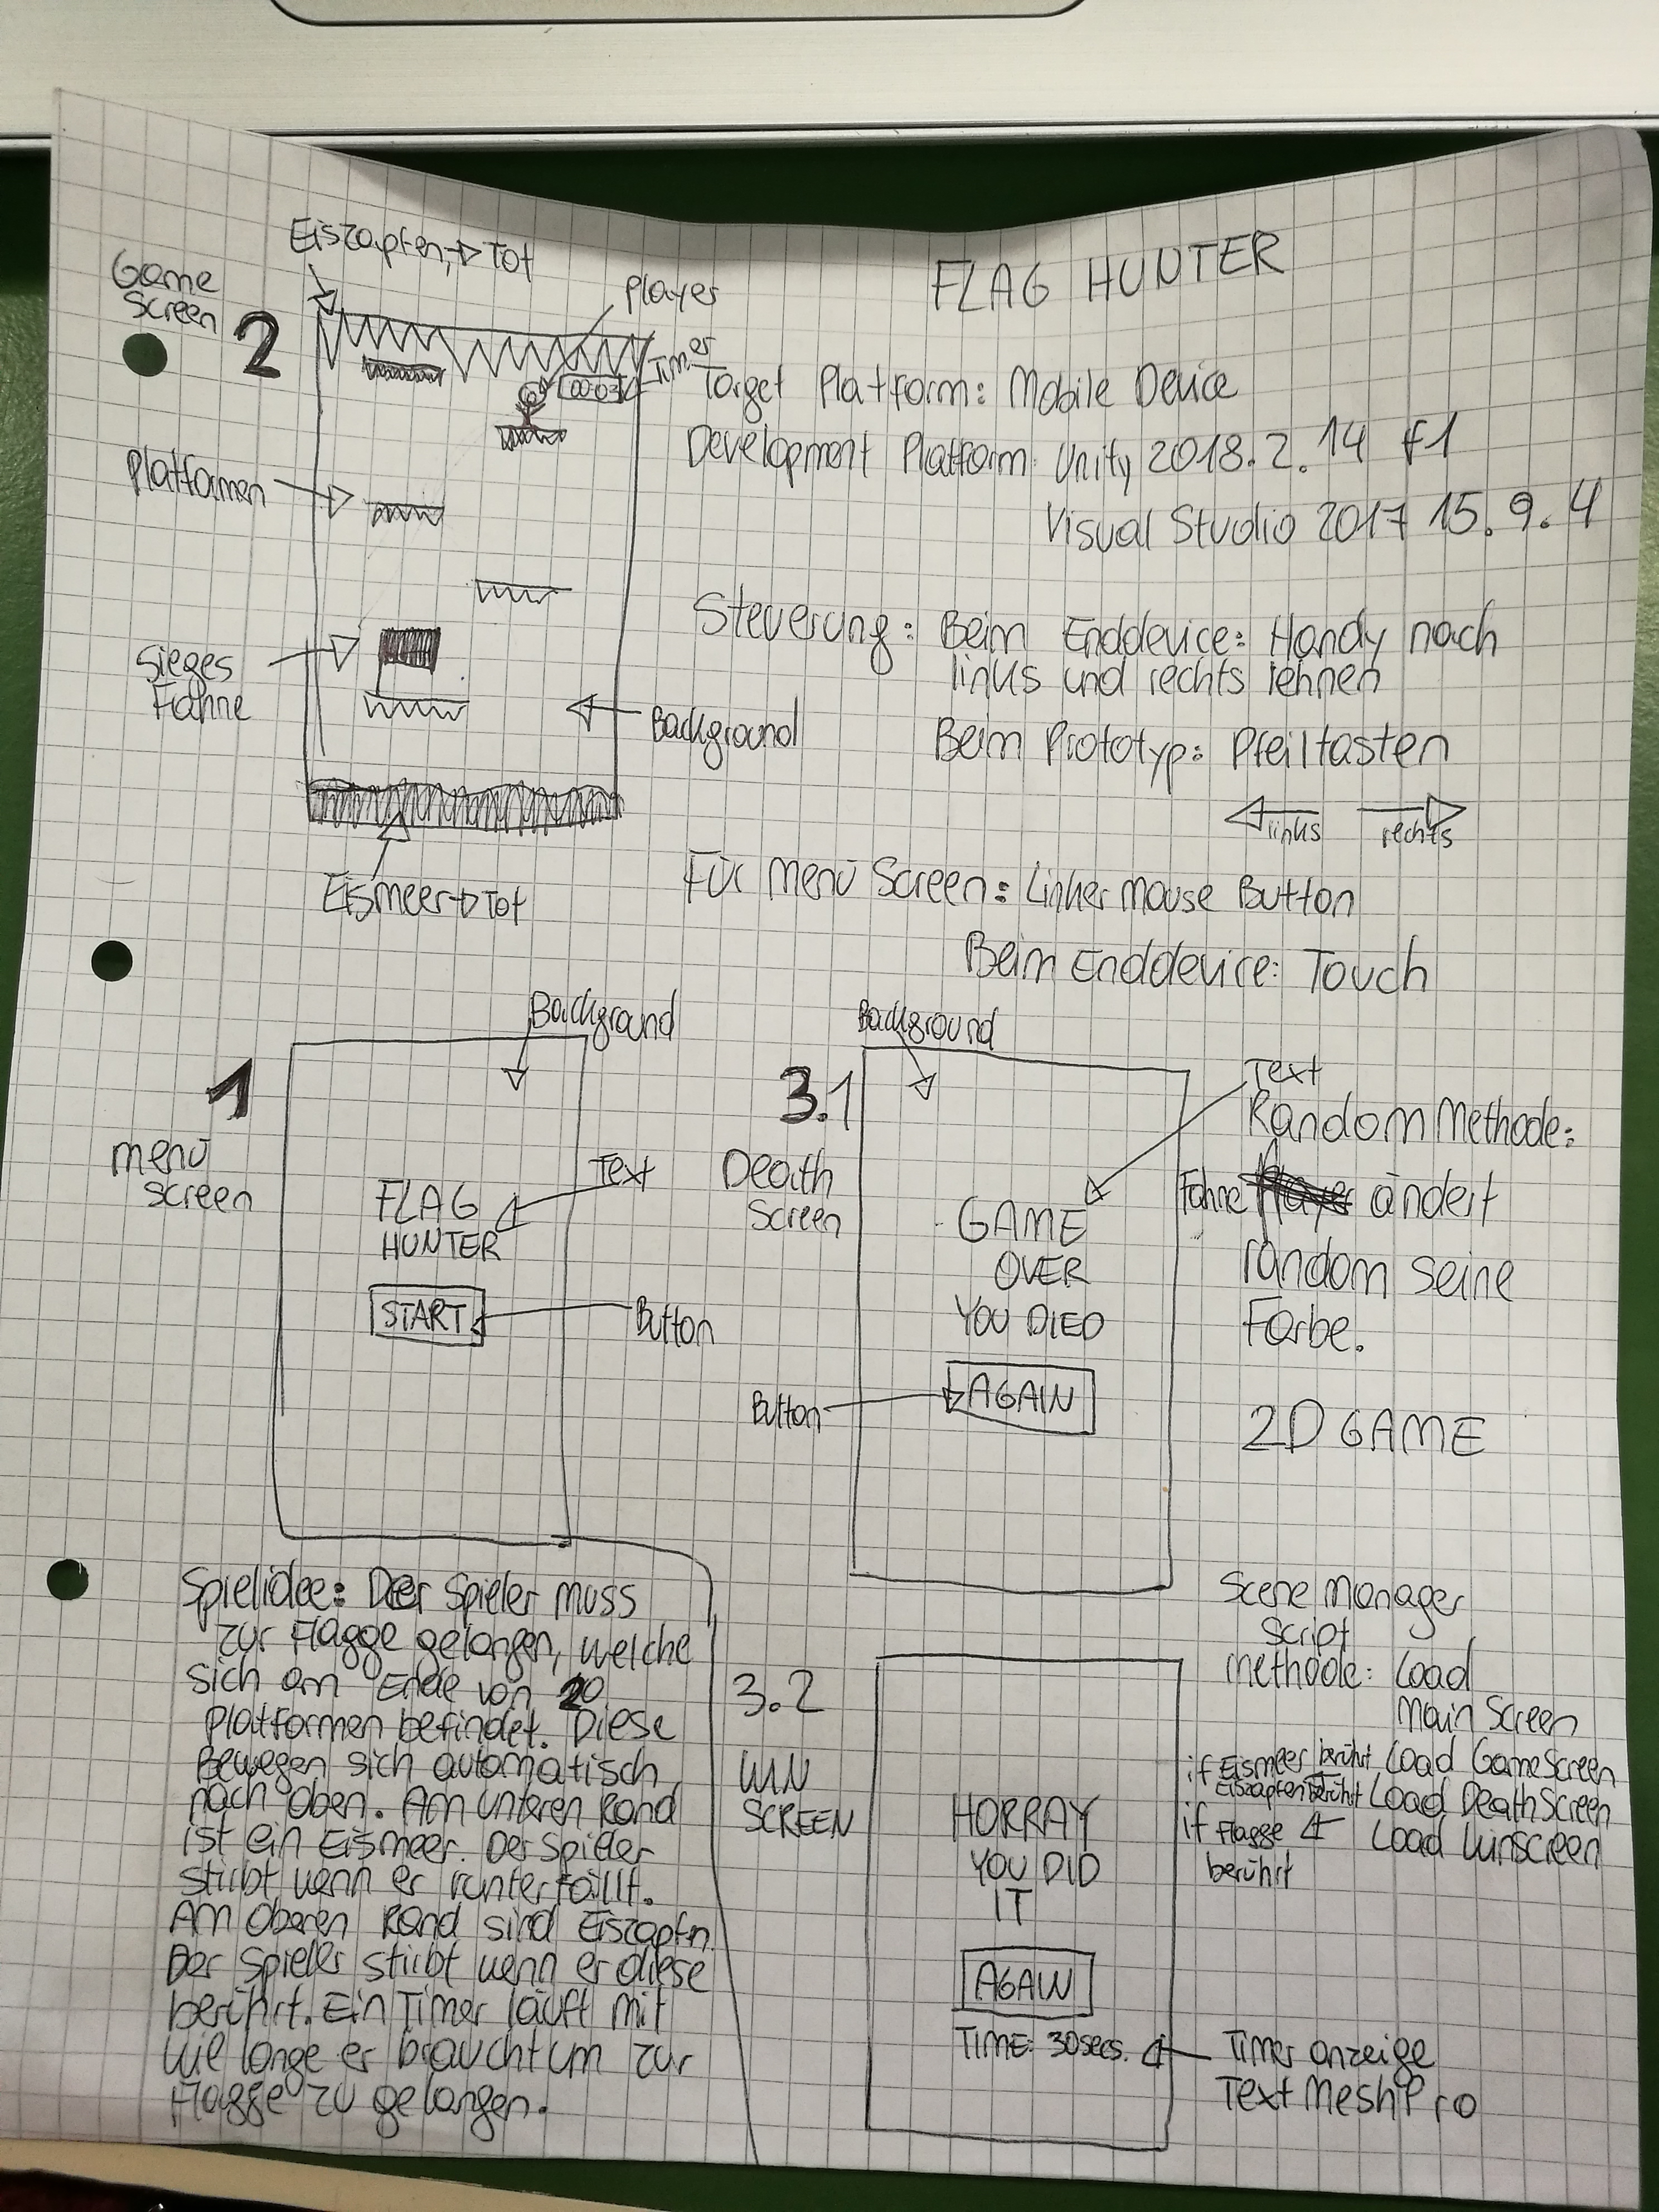 FLAG HUNTER
Game
Screen
2
Eiszapfen -> Tot
Player
Timer
00:03
Platformen
Sieges
Fahne
Background
Eismeer -> Tot
Target Platform: Mobile Device
Development Platform: Unity 2018.2.14 f1
Visual Studio 2017 15.9.4
Steuerung: Beim Enddevice: Handy nach
links und rechts lehnen
Beim Prototyp: Pfeiltasten
links rechts
Für Menü Screen: Linker Mouse Button
Beim Enddevice: Touch
1
menü
screen
Background
Text
FLAG
HUNTER
START
Button
3.1
Death
Screen
Background
Text
GAME
OVER
YOU DIED
AGAIN
Button
Random Methode:
Fahne ändert
random seine
Farbe.
2D GAME
Spielidee: Der Spieler muss
zur Flagge gelangen, welche
sich am Ende von 20
Platformen befindet. Diese
Bewegen sich automatisch
nach oben. Am unteren Rand
ist ein Eismeer. Der Spieler
stirbt wenn er runterfällt.
Am Oberen Rand sind Eiszapfn.
Der Spieler stirbt wenn er diese
berührt. Ein Timer läuft mit
wie lange er braucht um zur
Flagge zu gelangen.
3.2
WIN
SCREEN
HORRAY
YOU DID
IT
AGAIN
TIME: 30secs.
Timer anzeige
TextMeshPro
Scene Manager
Script
methode: Load
Main Screen
if Eismeer berührt Load GameScreen
Eiszapfen berührt Load DeathScreen
if Flagge Load Winscreen
berührt